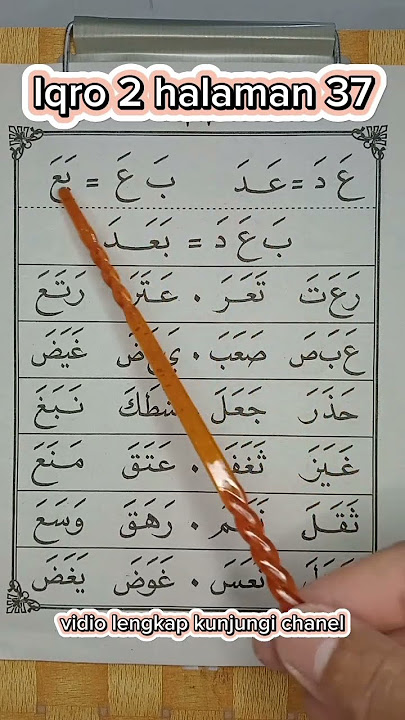 Iqro 2 halaman 37
عَ دَ = عَدَ بَ عَ = بَعَ
بَ عَ دَ = بَعَدَ
رَعَتَ تَعَرَ . عَتَرَ رَتَعَ
عَبَصَ صَعَبَ . غَيَضَ
حَذَرَ جَعَلَ نَبَغَ
غَيَزَ ثَغَفَ . عَتَقَ مَنَعَ
ثَقَلَ . رَهَقَ وَسَعَ
. غَوَضَ يَغَضَ
vidio lengkap kunjungi chanel